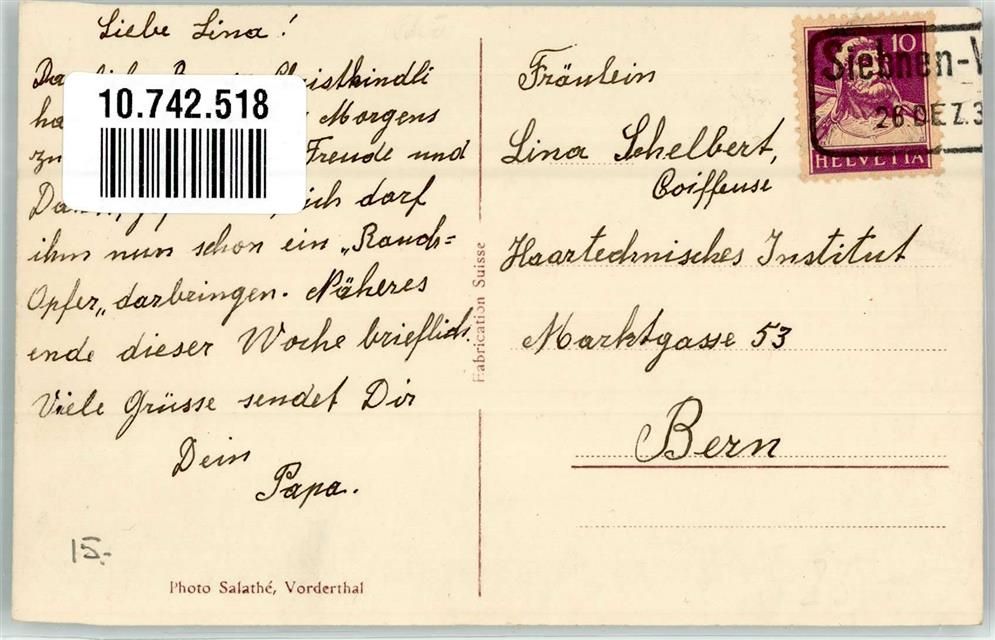 Liebe Lina!
Christkindli
Morgens
zu Freude und
ich darf
ihm nun schon ein „Rauch=
Opfer„ darbringen. Näheres
ende dieser Woche brieflich.
Viele Grüsse sendet Dir
Dein
Papa.
15.-
Photo Salathé, Vorderthal
10.742.518
Fabrication Suisse
10
HELVETIA
Siebnen-W
26 DEZ. 3
Fräulein
Lina Schelbert,
Coiffeuse
Haartechnisches Institut
Marktgasse 53
Bern